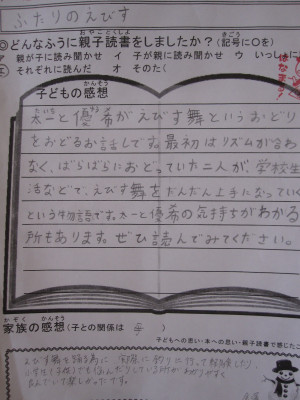 ふたりのえびす
◎どんなふうに親子読書をしましたか？（記号に○を）
おやこどくしょ
きごう
ア 親が子に読み聞かせ イ 子が親に読み聞かせ ウ いっしょに
エ それぞれに読んだ オ そのた（
かんそう
子どもの感想
たいち
太一と優希がえびす舞というおどり
をおどるお話しです。最初はリズムが合わ
なく、ばらばらにおどっていた二人が、学校生
活などで、えびす舞をだんだん上手になっていく
という物語です。太一と優希の気持ちがわかる
所もあります。ぜひ読んでみてください。
かぞく かんそう
家族の感想（子との関係は 母 ）
子どもへの思い・本への思い・親子読書で感じたこ
えびす舞を踊る為に 実際に釣りに行って